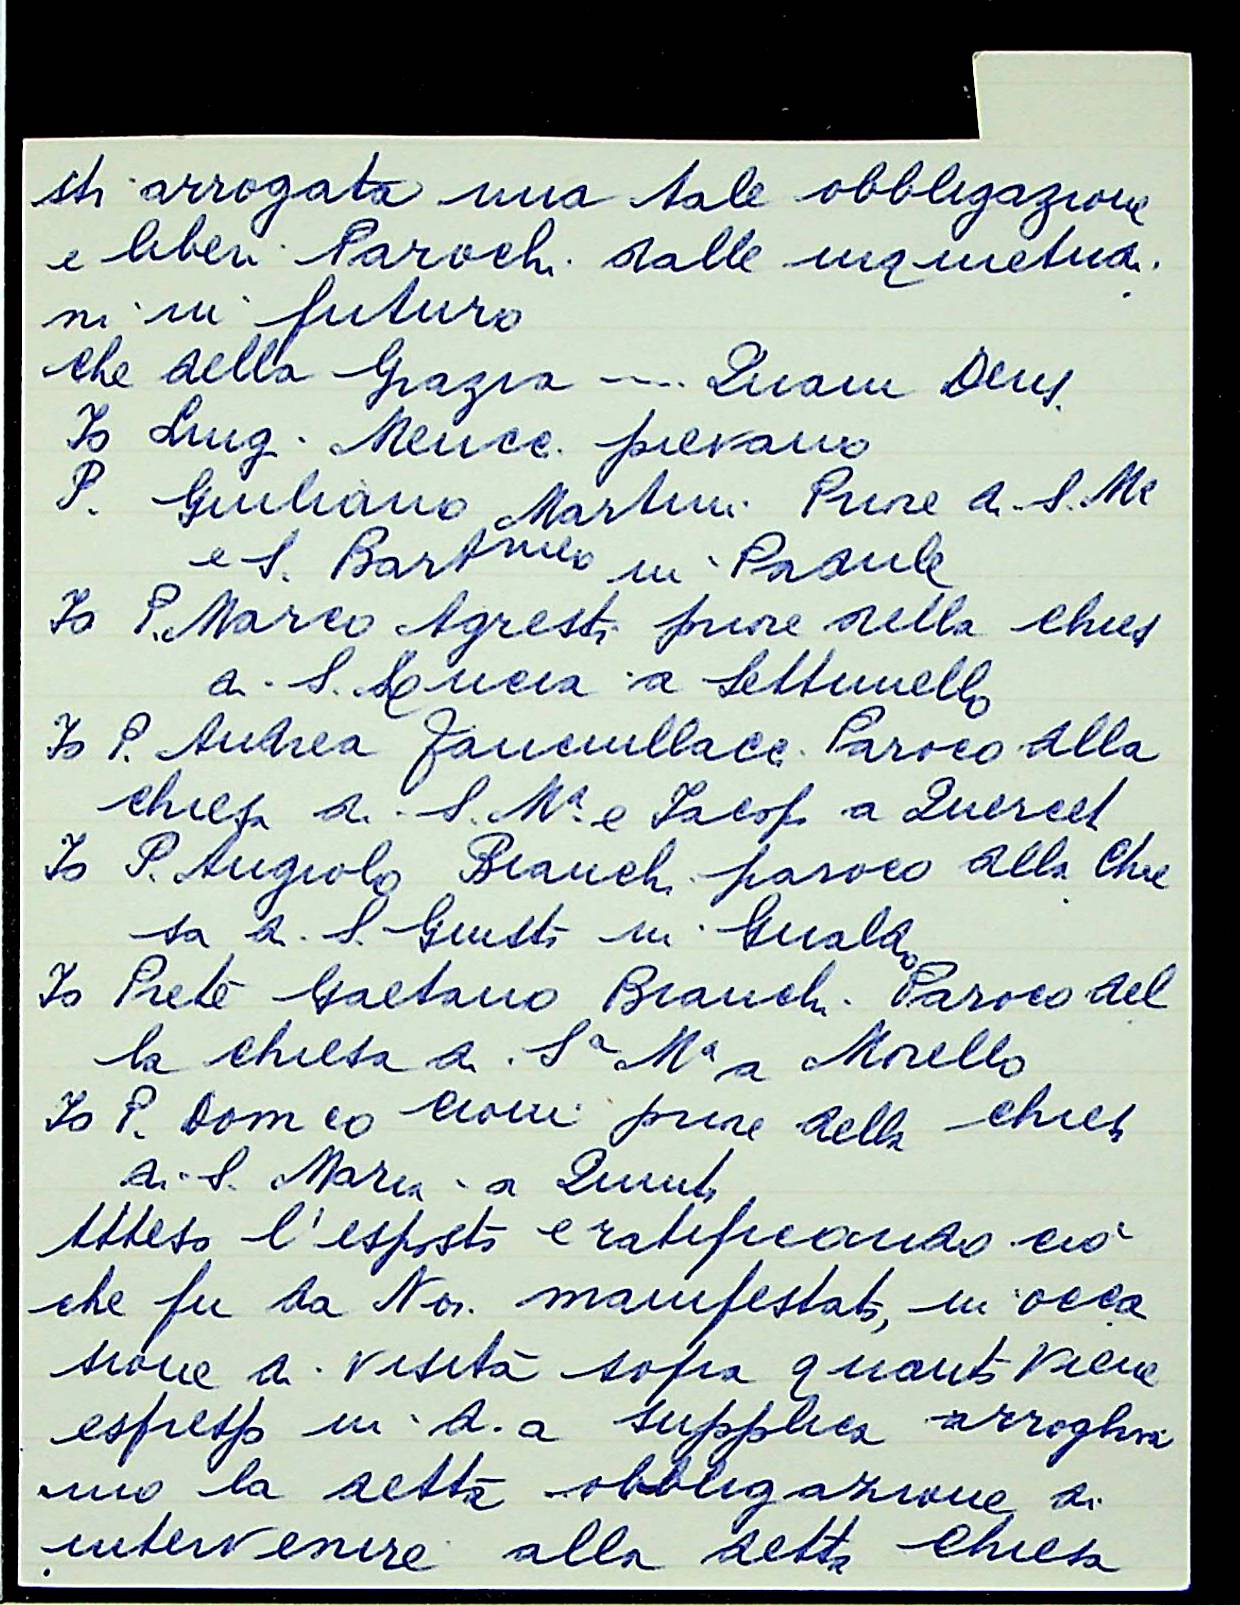 sti arrogata una tale obbligazione
e liberi Parochi dalle inquietudi.
ni in futuro
che della Grazia —.. Quam Deus.
Io Luig. Mencc. pievano
P. Giuliano Martini Priore di S. Ma
e S. Bartmeo in Padule
Io P. Marco Agresti priore della chies
di S. Lucia a Settimello
Io P. Andrea Fanciullacc. Paroco alla
chiesa di S. Ma e Iacopo a Querceto
Io P. Angiolo Bianchi paroco alla Chie
sa di S. Giusto in Gualdo
Io Prete Gaetano Bianchi Paroco del
la chiesa di Sa Ma a Morello
Io P. Domco Cioni priore della chiesa
di S. Maria a Quinto
Atteso l'esposto e ratificando ciò
che fu da Noi manifestato, in occa
sione di visita sopra quanto viene
espresso in d.a supplica arroghia
mo la detta obbligazione di
intervenire alla detta Chiesa